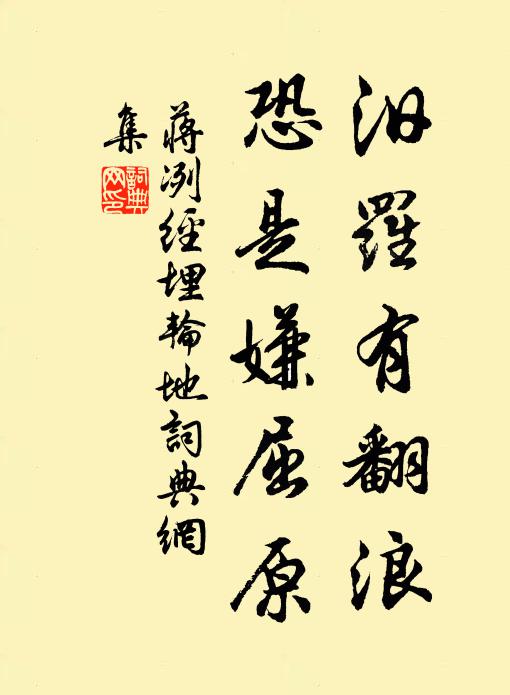 汨羅有翻浪
恐是嫌屈原
蔣洌經埋輪地詞典網
集
詞典
网印